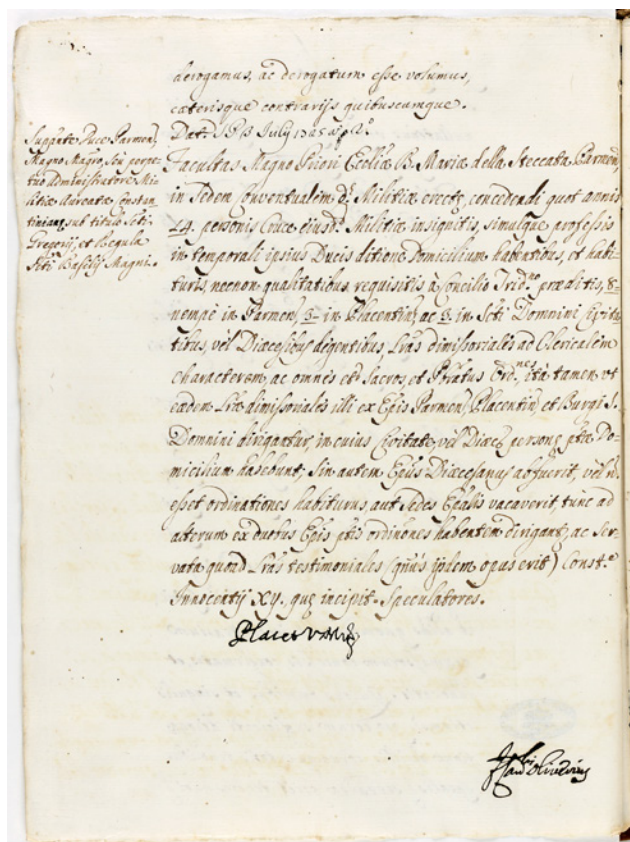 derogamus, ac derogatum esse volumus,
cæterisque contrarijs quibuscumque.
Dat. July 1725
Sup.ante Duce Parmen,
Magno Mag.ro, seu perpe-
tuo Administratore Mi-
litiæ Aureatæ Constan-
tinianę sub titulo Scti
Gregorij, et Regula
Scti Basilij Magni.
Facultas Magno Priori Ecclię B. Mariæ della Steccata Parmen,
in Sedem Conventualem d. Militiæ erectę, concedendi quot annis
14. personis Cruce eiusd. Militiæ insignitis, simulque professis
in temporali ipsius Ducis ditione Domicilium habentibus, et habi-
turis, necnon qualitatibus requisitis à Concilio Trid.no præditis, 8-
nempè in Parmen, 3- in Placentin, ac 3. in Scti Domnini Civita-
tibus, vèl Diœcesibus degentibus, Lras dimissoriales ad Clericalem
Characterem, ac omnes etd Sacros, et P͠b͠ratus Ord.nes, ità tamen ut
eædem Lræ dimissoriales illi ex Epis Parmen, Placentin, et Burgi S.
Domnini dirigantur, in cuius Civitate, vèl Diœc. personę ptæ Do-
micilium habebunt; Sin autem Epus Diœcesanus abfuerit, vèl ñ
esset ordinationes habiturus, aut Sedes Epalis vacaverit, tunc ad
alterum ex duobus Epis ptis ordinones habentem dirigant, ac ser-
vata quoad Lras testimoniales (quus ijsdem opus erit) Const.e
Innocentij XII. quę incipit. Speculatores.
Placet
Oliverius